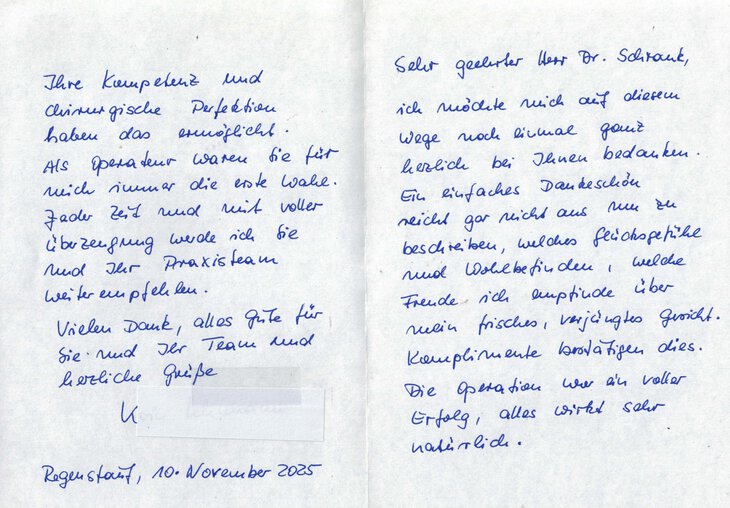 Sehr geehrter Herr Dr. Schrank,
ich möchte mich auf diesem
Wege noch einmal ganz
herzlich bei Ihnen bedanken.
Ein einfaches Dankeschön
reicht gar nicht aus um zu
beschreiben, welches Glücksgefühl
und Wohlbefinden, welche
Freude ich empfinde über
mein frisches, verjüngtes Gesicht.
Komplimente bestätigen dies.
Die Operation war ein voller
Erfolg, alles wirkt sehr
natürlich.
Ihre Kompetenz und
chirurgische Perfektion
haben das ermöglicht.
Als Operateur waren Sie für
mich immer die erste Wahl.
Jader Zeit und mit voller
Überzeugung werde ich Sie
und Ihr Praxisteam
weiterempfehlen.
Vielen Dank, alles Gute für
Sie und Ihr Team und
herzliche Grüße
K
Regenstauf, 10. November 2025